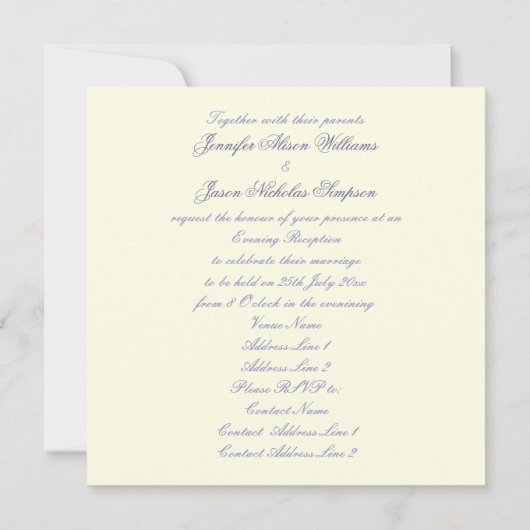 Together with their parents
Jennifer Alison Williams
&
Jason Nicholas Simpson
request the honour of your presence at an
Evening Reception
to celebrate their marriage
to be held on 25th July 20xx
from 8 O'clock in the evenining
Venue Name
Address Line 1
Address Line 2
Please RSVP to:
Contact Name
Contact Address Line 1
Contact Address Line 2